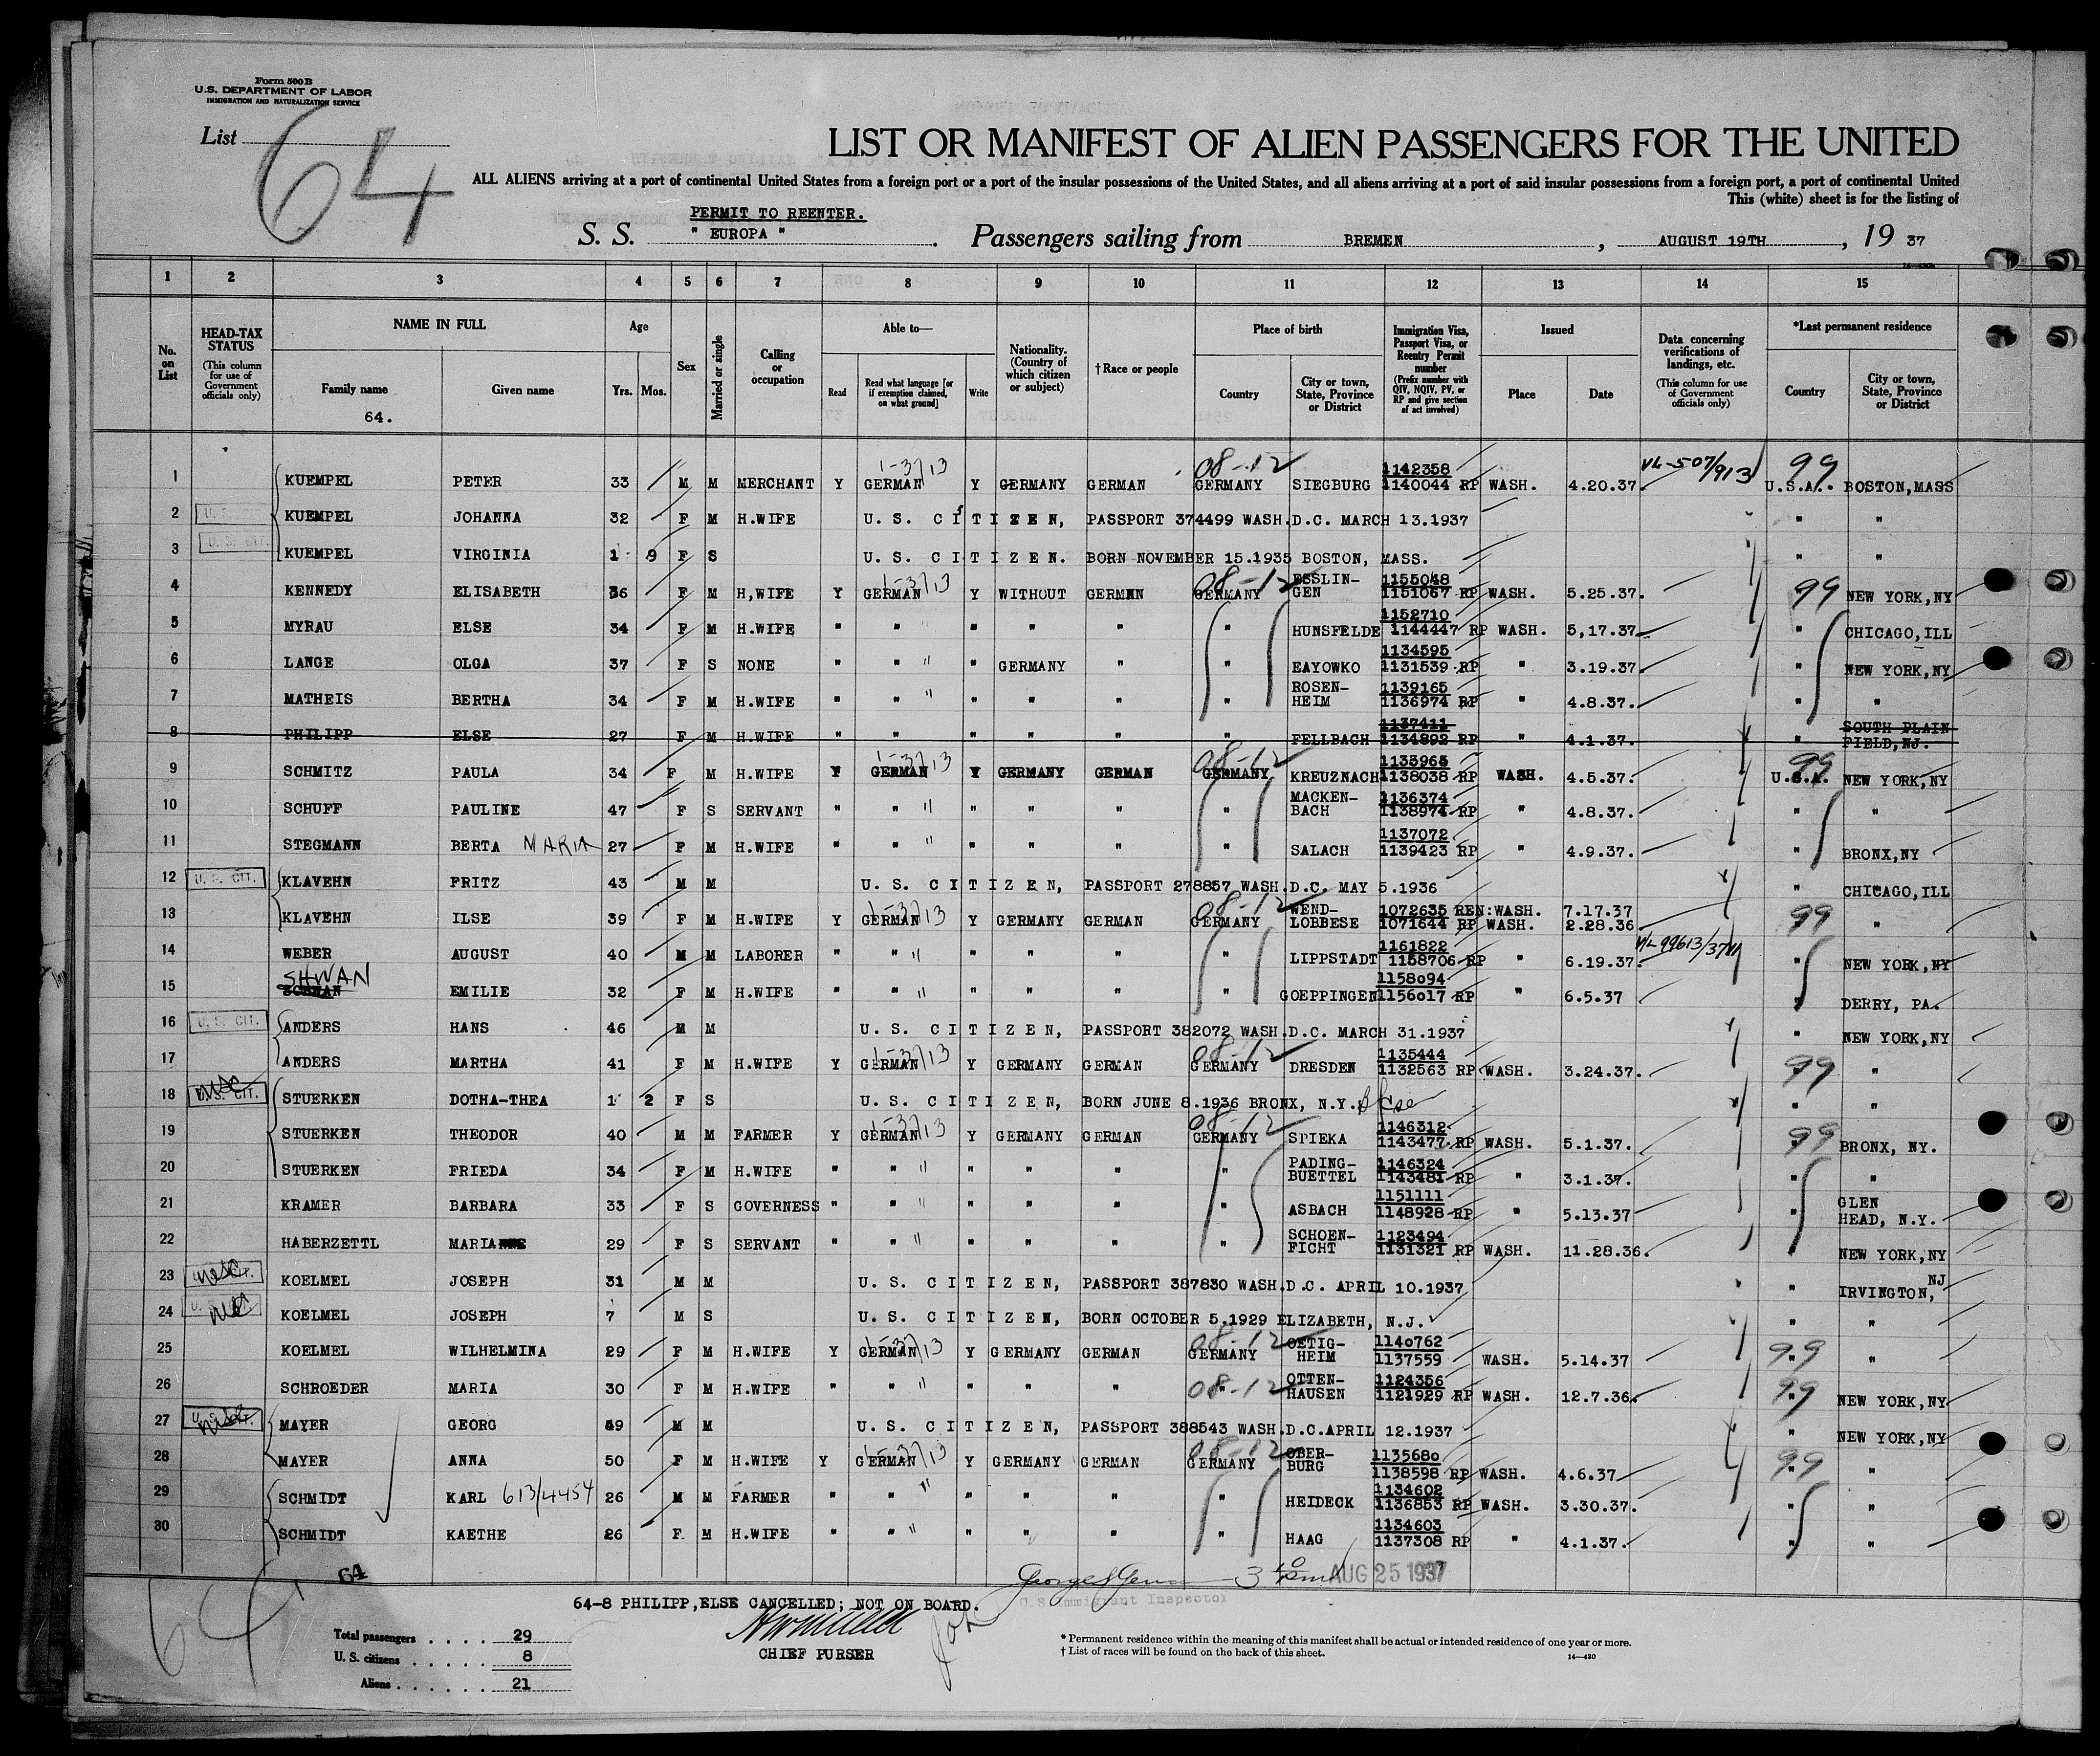 Form 500B
U.S. DEPARTMENT OF LABOR
IMMIGRATION AND NATURALIZATION SERVICE
List 64
LIST OR MANIFEST OF ALIEN PASSENGERS FOR THE UNITED
ALL ALIENS arriving at a port of continental United States from a foreign port or a port of the insular possessions of the United States, and all aliens arriving at a port of said insular possessions from a foreign port, a port of continental United
This (white) sheet is for the listing of
PERMIT TO REENTER.
S. S. " EUROPA ". Passengers sailing from BREMEN, AUGUST 19TH, 19 37
1 2 3 4 5 6 7 8 9 10 11 12 13 14 15
No. on List
HEAD-TAX STATUS (This column for use of Government officials only)
NAME IN FULL Family name Given name
64.
Age Yrs. Mos.
Sex
Married or single
Calling or occupation
Able to— Read Read what language [or if exemption claimed, on what ground] Write
Nationality. (Country of which citizen or subject)
†Race or people
Place of birth Country City or town, State, Province or District
Immigration Visa, Passport Visa, or Reentry Permit number (Prefix number with QIV, NQIV, PV, or RP and give section of act involved)
Issued Place Date
Data concerning verifications of landings, etc. (This column for use of Government officials only)
*Last permanent residence Country City or town, State, Province or District
1 KUEMPEL PETER 33 M M MERCHANT Y GERMAN 1-37/13 Y GERMANY GERMAN 08-12 GERMANY SIEGBURG 1142358 1140044 RP WASH. 4.20.37. VL-507/913 99 U.S.A. BOSTON,MASS
2 U.S. KUEMPEL JOHANNA 32 F M H.WIFE U. S. CITIZEN, PASSPORT 374499 WASH.D.C. MARCH 13.1937 " "
3 U. S. CIT. KUEMPEL VIRGINIA 1 9 F S U. S. CITIZEN. BORN NOVEMBER 15.1935 BOSTON, MASS. " "
4 KENNEDY ELISABETH 36 F M H,WIFE Y GERMAN 1-37/13 Y WITHOUT GERMAN 08-12 GERMANY ESSLIN-GEN 1155048 1151067 RP WASH. 5.25.37. 99 NEW YORK,NY
5 MYRAU ELSE 34 F M H.WIFE " " " " " " " HUNSFELDE 1152710 1144447 RP WASH. 5,17.37. " CHICAGO,ILL
6 LANGE OLGA 37 F S NONE " " " " GERMANY " " EAYOWKO 1134595 1131539 RP " 3.19.37. " NEW YORK,NY
7 MATHEIS BERTHA 34 F M H.WIFE " " " " " " " ROSEN-HEIM 1139165 1136974 RP " 4.8.37. " "
8 PHILIPP ELSE 27 F M H.WIFE " " " " " " FELLBACH 1137411 1134892 RP " 4.1.37. " SOUTH PLAIN FIELD,NJ.
9 SCHMITZ PAULA 34 F M H.WIFE Y GERMAN 1-37/13 Y GERMANY GERMAN 08-12 GERMANY KREUZNACH 1135965 1138038 RP WASH. 4.5.37. 99 U.S.A. NEW YORK,NY
10 SCHUFF PAULINE 47 F S SERVANT " " " " " " " MACKEN-BACH 1136374 1138974 RP " 4.8.37. " "
11 STEGMANN BERTA MARIA 27 F M H.WIFE " " " " " " " SALACH 1137072 1139423 RP " 4.9.37. " BRONX,NY
12 U. S. CIT. KLAVEHN FRITZ 43 M M U. S. CITIZEN, PASSPORT 278857 WASH.D.C. MAY 5.1936 " CHICAGO,ILL
13 KLAVEHN ILSE 39 F M H.WIFE Y GERMAN 1-37/13 Y GERMANY GERMAN 08-12 GERMANY WEND-LOBBESE 1072635 REN:WASH. 7.17.37 1071644 RP WASH. 2.28.36 99 "
14 WEBER AUGUST 40 M M LABORER " " " " " " " LIPPSTADT 1161822 1158706 RP " 6.19.37. " NEW YORK,NY
15 SHWAN EMILIE 32 F M H.WIFE " " " " " " " GOEPPINGEN 1158094 1156017 RP " 6.5.37 " DERRY, PA.
16 U. S. CIT. ANDERS HANS 46 M M U. S. CITIZEN, PASSPORT 382072 WASH.D.C. MARCH 31.1937 " NEW YORK,NY
17 ANDERS MARTHA 41 F M H.WIFE Y GERMAN 1-37/13 Y GERMANY GERMAN 08-12 GERMANY DRESDEN 1135444 1132563 RP WASH. 3.24.37. 99 "
18 U.S. CIT. STUERKEN DOTHA-THEA 1 2 F S U. S. CITIZEN, BORN JUNE 8.1936 BRONX, N.Y. " "
19 STUERKEN THEODOR 40 M M FARMER Y GERMAN 1-37/13 Y GERMANY GERMAN 08-12 GERMANY SPIEKA 1146312 1143477 RP WASH. 5.1.37. 99 BRONX, NY.
20 STUERKEN FRIEDA 34 F M H.WIFE " " " " " " " PADING-BUETTEL 1146324 1143481 RP " 3.1.37. " "
21 KRAMER BARBARA 33 F S GOVERNESS " " " " " " " ASBACH 1151111 1148928 RP " 5.13.37 " GLEN HEAD, N.Y.
22 HABERZETTL MARIA 29 F S SERVANT " " " " " " " SCHOEN-FICHT 1123494 1131321 RP WASH. 11.28.36. " NEW YORK,NY
23 KOELMEL JOSEPH 31 M M U. S. CITIZEN, PASSPORT 387830 WASH.D.C. APRIL 10.1937 " IRVINGTON, NJ
24 KOELMEL JOSEPH 7 M S U. S. CITIZEN, BORN OCTOBER 5.1929 ELIZABETH, N.J. " "
25 KOELMEL WILHELMINA 29 F M H.WIFE Y GERMAN 1-37/13 Y GERMANY GERMAN 08-12 GERMANY OETIG-HEIM 1140762 1137559 WASH. 5.14.37 99 " "
26 SCHROEDER MARIA 30 F M H.WIFE " " " " " " 08-12 " OTTEN-HAUSEN 1124356 1121929 RP WASH. 12.7.36. 99 " NEW YORK,NY
27 MAYER GEORG 49 M M U. S. CITIZEN, PASSPORT 388543 WASH.D.C.APRIL 12.1937 " NEW YORK,NY
28 MAYER ANNA 50 F M H.WIFE Y GERMAN 1-37/13 Y GERMANY GERMAN 08-12 GERMANY OBER-BURG 1135680 1138598 RP WASH. 4.6.37 99 "
29 SCHMIDT KARL 613/4454 26 M M FARMER " " " " " " " HEIDECK 1134602 1136853 RP WASH. 3.30.37. " "
30 SCHMIDT KAETHE 26 F. M H.WIFE " " " " " " " HAAG 1134603 1137308 RP " 4.1.37. " "
64
64
AUG 25 1937
U.S. Immigrant Inspector
64-8 PHILIPP,ELSE CANCELLED; NOT ON BOARD.
CHIEF PURSER
Total passengers . . . . 29
U. S. citizens . . . . . 8
Aliens . . . . . . 21
* Permanent residence within the meaning of this manifest shall be actual or intended residence of one year or more.
† List of races will be found on the back of this sheet.
14—430